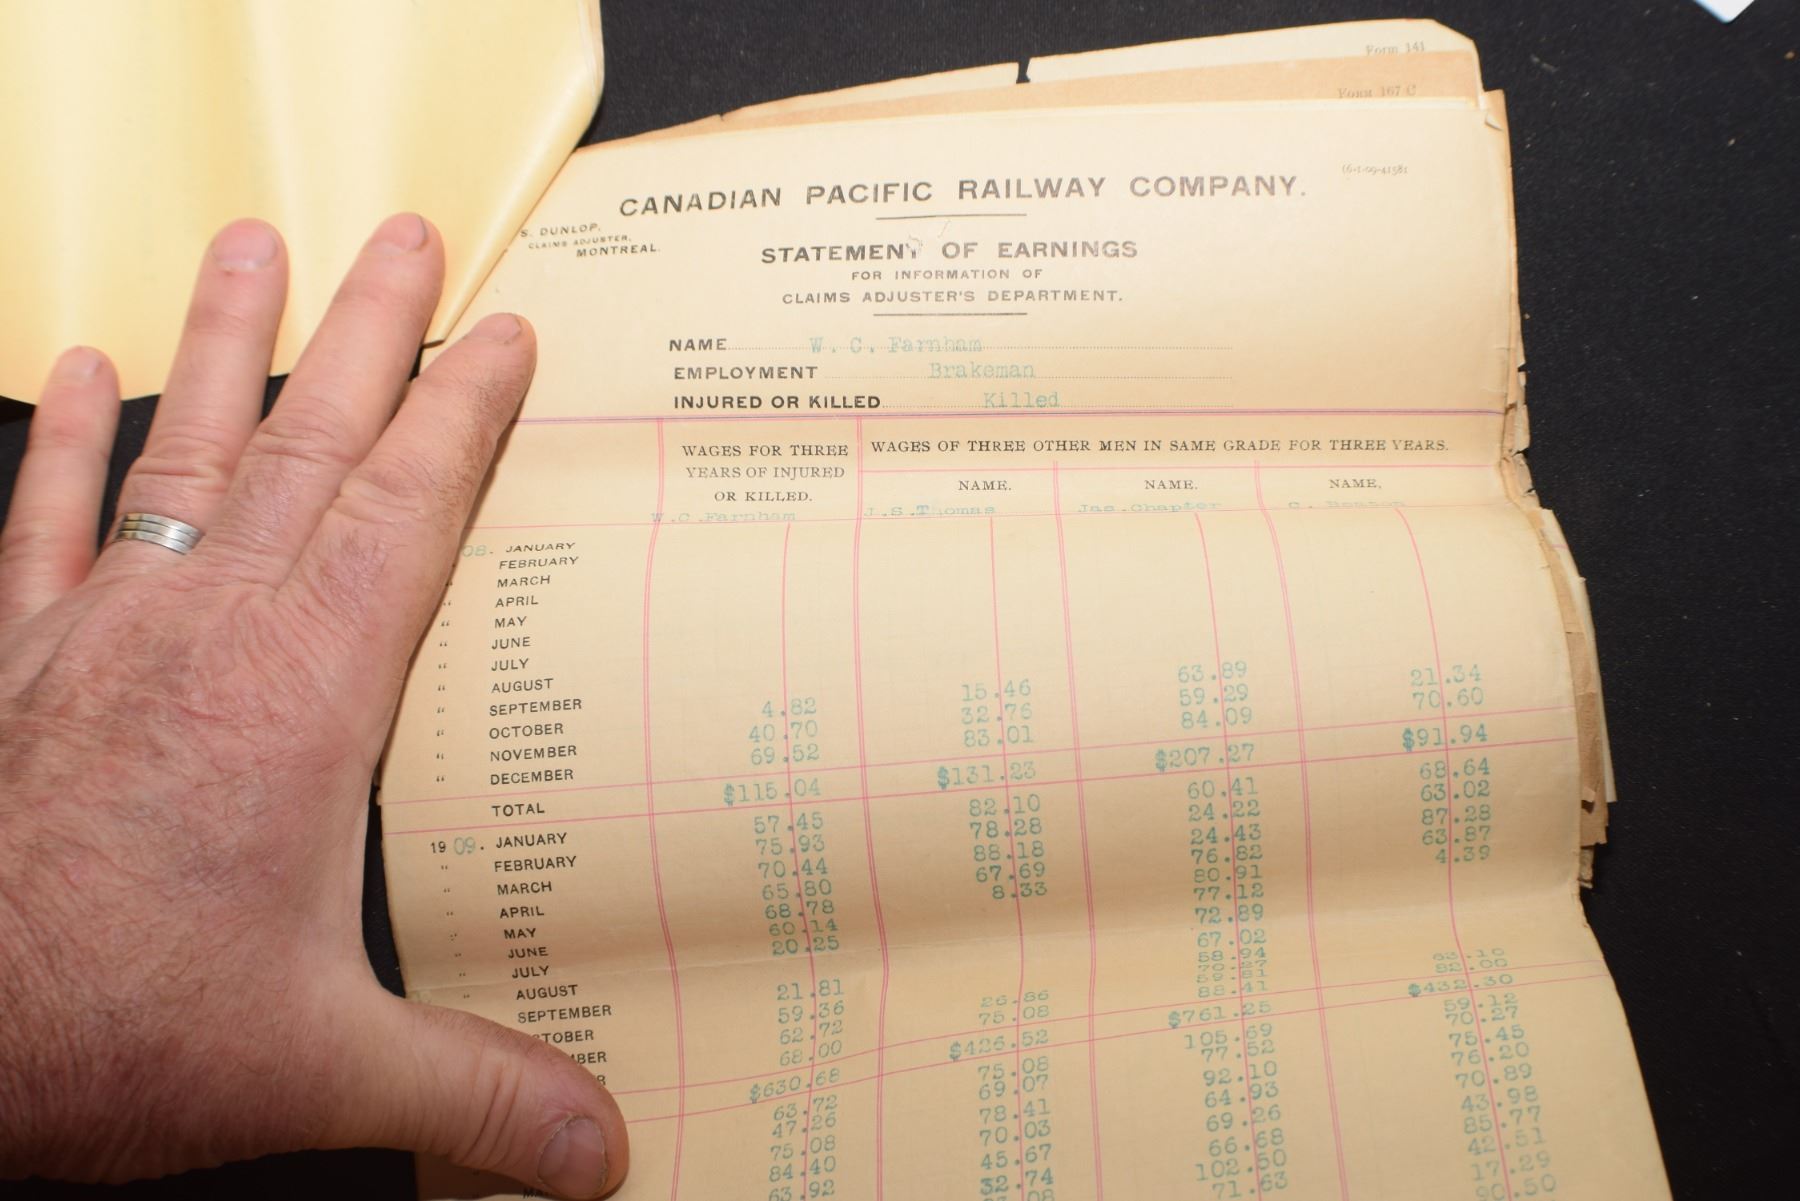 Form 141
Form 167 C
(6-1-09-41581
CANADIAN PACIFIC RAILWAY COMPANY.
S. DUNLOP,
CLAIMS ADJUSTER,
MONTREAL.
STATEMENT OF EARNINGS
FOR INFORMATION OF
CLAIMS ADJUSTER'S DEPARTMENT.
NAME W. C. Farnham
EMPLOYMENT Brakeman
INJURED OR KILLED Killed
WAGES FOR THREE YEARS OF INJURED OR KILLED.
WAGES OF THREE OTHER MEN IN SAME GRADE FOR THREE YEARS.
NAME. NAME. NAME,
W.C.Farnham J.S.Thomas Jas.Chapter C. Beaton
08. JANUARY
" FEBRUARY
" MARCH
" APRIL
" MAY
" JUNE
" JULY
" AUGUST
" SEPTEMBER
" OCTOBER 4.82 15.46 63.89
" NOVEMBER 40.70 32.76 59.29 21.34
" DECEMBER 69.52 83.01 84.09 70.60
TOTAL $115.04 $131.23 $207.27 $91.94
1909. JANUARY 57.45 82.10 60.41 68.64
" FEBRUARY 75.93 78.28 24.22 63.02
" MARCH 70.44 88.18 24.43 87.28
" APRIL 65.80 67.69 76.82 63.87
" MAY 68.78 8.33 80.91 4.39
" JUNE 60.14 77.12
" JULY 20.25 72.89
" AUGUST 67.02
SEPTEMBER 21.81 58.94
TOBER 59.36 70.27
BER 62.72 26.86 59.81 63.10
R 68.00 75.08 88.41 82.00
$630.68 $426.52 $761.25 $432.30
63.72 75.08 105.69 59.12
47.26 69.07 77.52 70.27
75.08 78.41 92.10 75.45
84.40 70.03 64.93 76.20
63.92 45.67 69.26 70.89
32.74 66.68 43.98
08 102.50 85.77
71.63 42.51
17.29
90.50